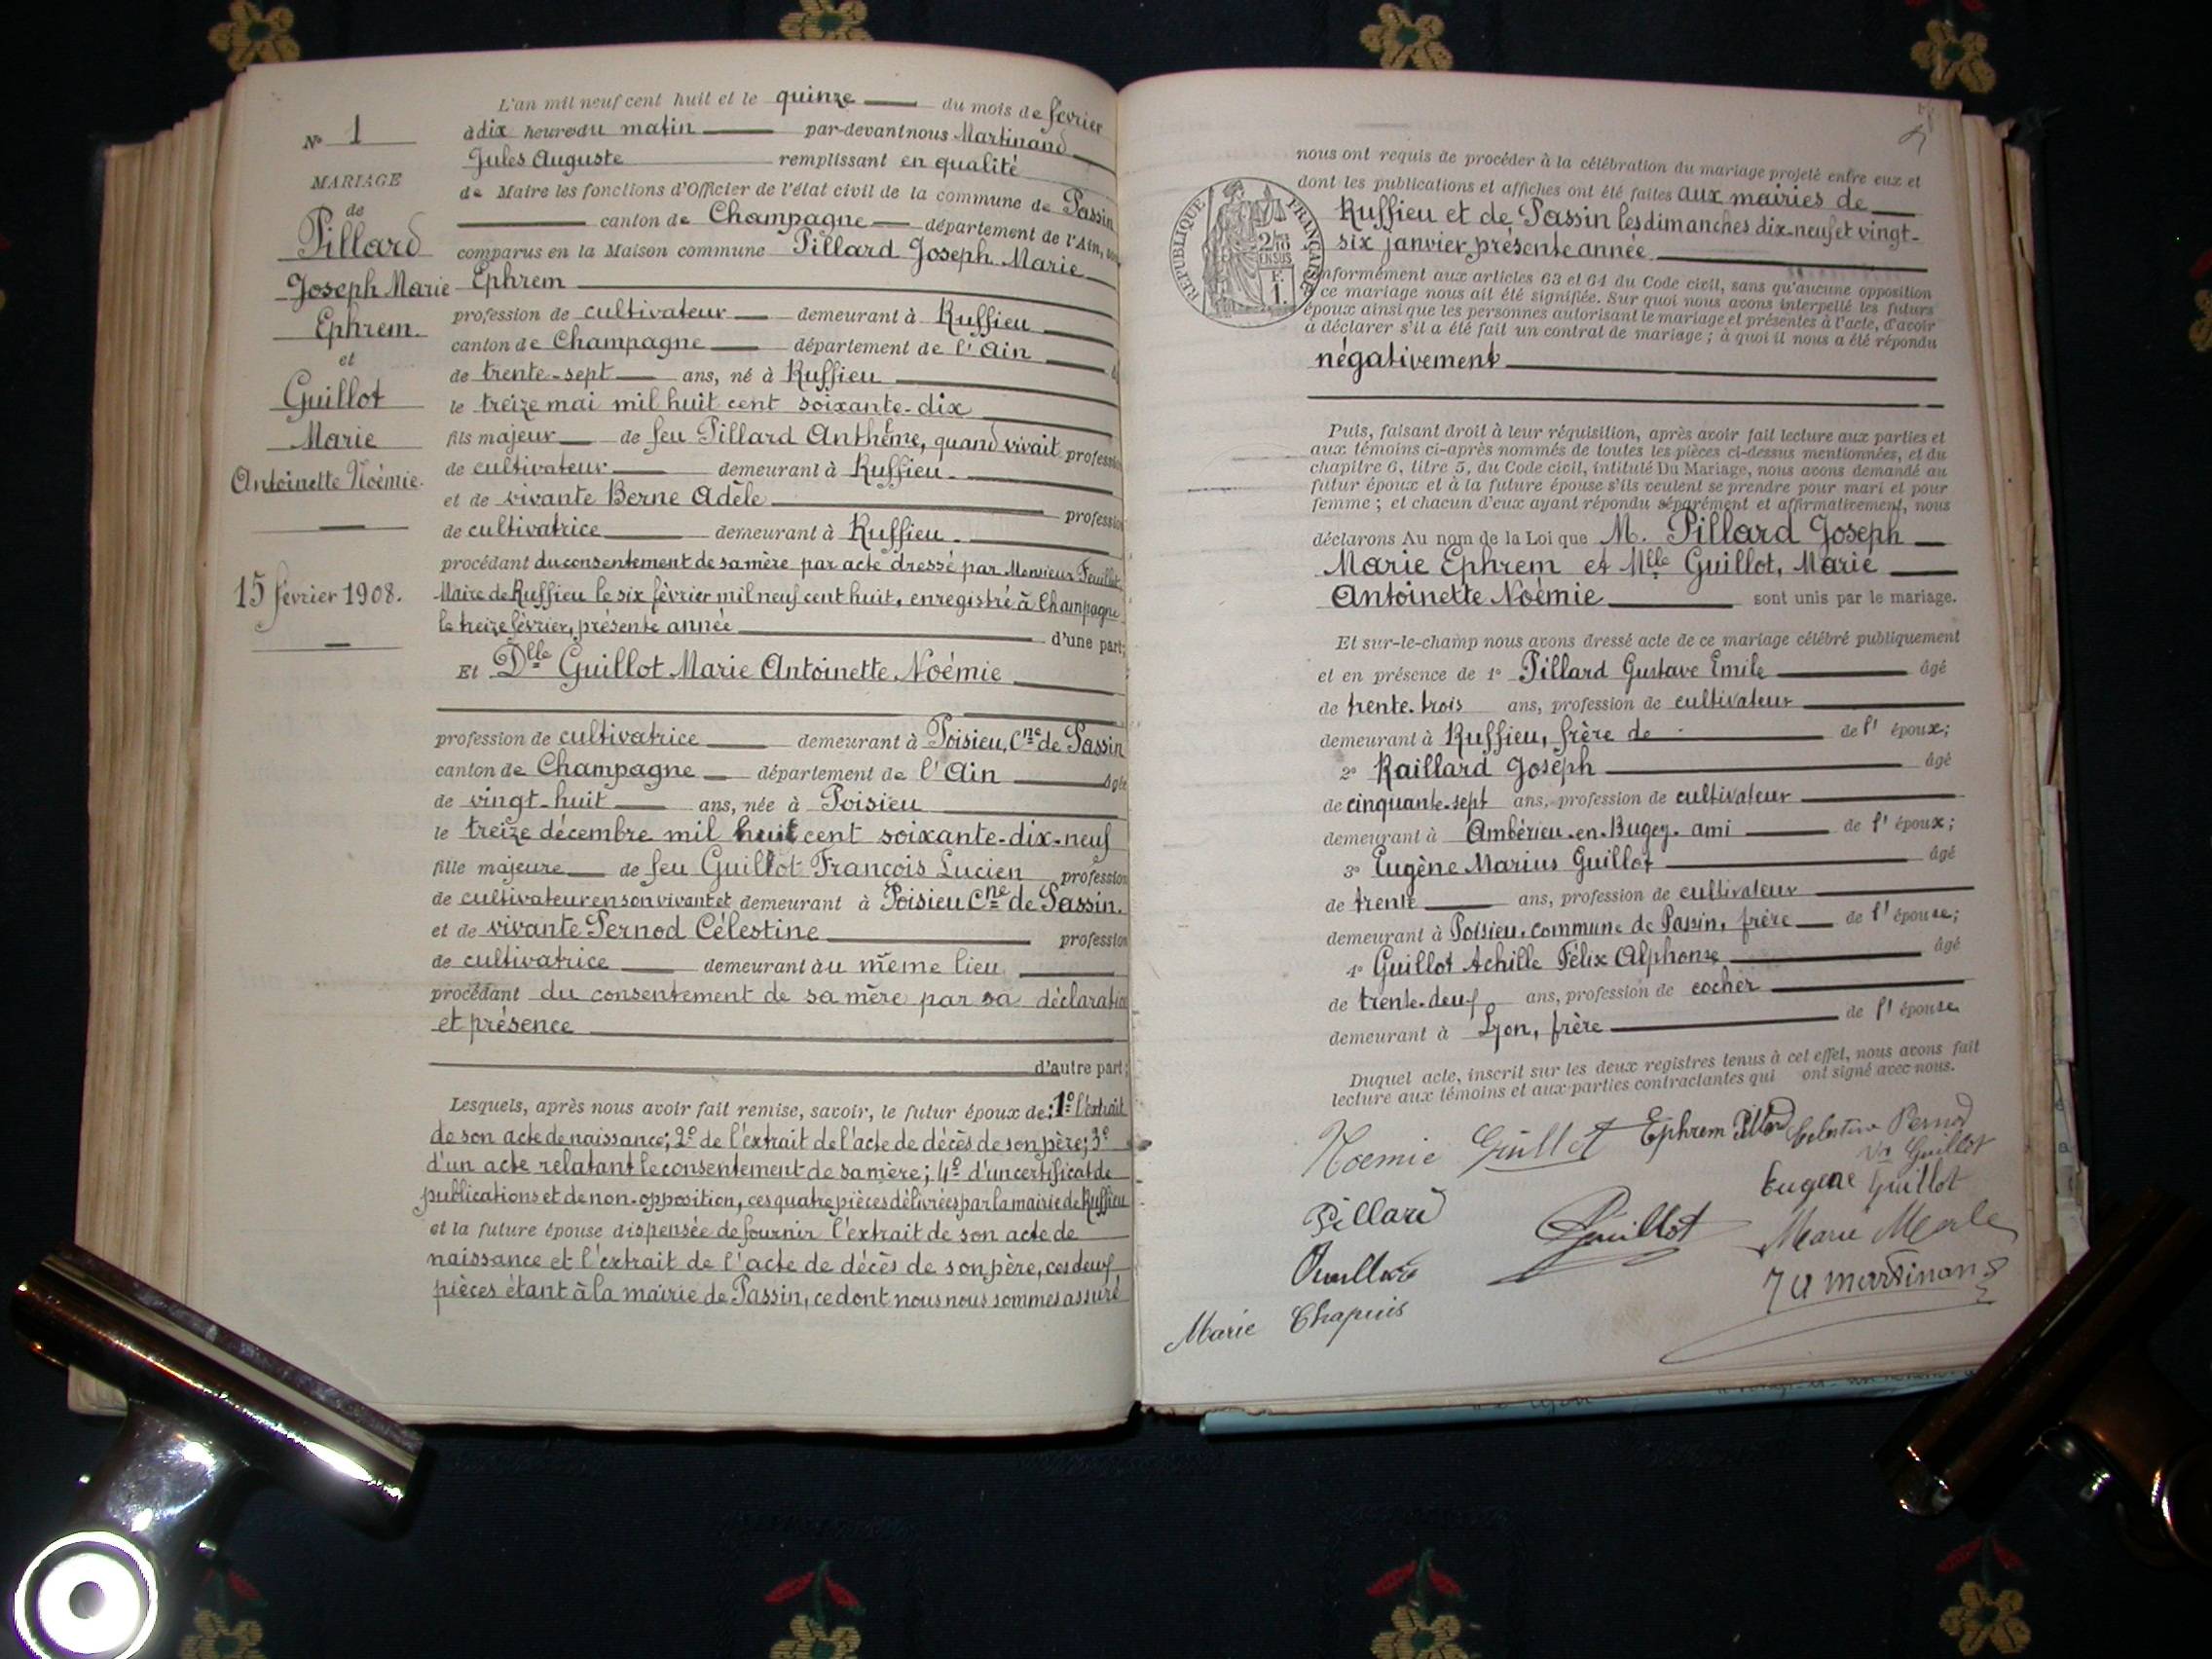 N° 1
MARIAGE
de
Pillard
Joseph Marie
Ephrem.
et
Guillot
Marie
Antoinette Noémie.
15 février 1908.
L'an mil neuf cent huit et le quinze du mois de février
à dix heures du matin par-devant nous Martinand
Jules Auguste remplissant en qualité
de Maire les fonctions d'Officier de l'état civil de la commune de Passin
canton de Champagne département de l'Ain,
comparus en la Maison commune Pillard Joseph Marie
Ephrem
profession de cultivateur demeurant à Ruffieu
canton de Champagne département de l'Ain
de trente-sept ans, né à Ruffieu
le treize mai mil huit cent soixante-dix
fils majeur de feu Pillard Anthème, quand vivait profession
de cultivateur demeurant à Ruffieu.
et de vivante Berne Adèle profession
de cultivatrice demeurant à Ruffieu.
procédant du consentement de sa mère par acte dressé par Monsieur Feuillet
Maire de Ruffieu le six février mil neuf cent huit, enregistré à Champagne
le treize février, présente année d'une part;
Et Dlle Guillot Marie Antoinette Noémie
profession de cultivatrice demeurant à Poisieu, Cne de Passin
canton de Champagne département de l'Ain âgée
de vingt-huit ans, née à Poisieu
le treize décembre mil huit cent soixante-dix-neuf
fille majeure de feu Guillot François Lucien profession
de cultivateur en son vivant et demeurant à Poisieu Cne de Passin.
et de vivante Pernod Célestine profession
de cultivatrice demeurant au même lieu
procédant du consentement de sa mère par sa déclaration
et présence
d'autre part;
Lesquels, après nous avoir fait remise, savoir, le futur époux de: 1° l'extrait
de son acte de naissance; 2° de l'extrait de l'acte de décès de son père; 3°
d'un acte relatant le consentement de sa mère; 4° d'un certificat de
publications et de non-opposition, ces quatre pièces délivrées par la mairie de Ruffieu
et la future épouse dispensée de fournir l'extrait de son acte de
naissance et l'extrait de l'acte de décès de son père, ces deux
pièces étant à la mairie de Passin, ce dont nous nous sommes assuré
RÉPUBLIQUE FRANÇAISE
2/10
EN SUS
nous ont requis de procéder à la célébration du mariage projeté entre eux et
dont les publications et affiches ont été faites aux mairies de
Ruffieu et de Passin les dimanches dix-neuf et vingt-
six janvier, présente année
conformément aux articles 63 et 64 du Code civil, sans qu'aucune opposition
à ce mariage nous ait été signifiée. Sur quoi nous avons interpellé les futurs
époux ainsi que les personnes autorisant le mariage et présentes à l'acte, d'avoir
à déclarer s'il a été fait un contrat de mariage; à quoi il nous a été répondu
négativement
Puis, faisant droit à leur réquisition, après avoir fait lecture aux parties et
aux témoins ci-après nommés de toutes les pièces ci-dessus mentionnées, et du
chapitre 6, titre 5, du Code civil, intitulé Du Mariage, nous avons demandé au
futur époux et à la future épouse s'ils veulent se prendre pour mari et pour
femme; et chacun d'eux ayant répondu séparément et affirmativement, nous
déclarons Au nom de la Loi que M. Pillard Joseph
Marie Ephrem et Mlle Guillot, Marie
Antoinette Noémie sont unis par le mariage.
Et sur-le-champ nous avons dressé acte de ce mariage célébré publiquement
et en présence de 1° Pillard Gustave Emile âgé
de trente-trois ans, profession de cultivateur
demeurant à Ruffieu, frère de de l'époux;
2° Raillard Joseph âgé
de cinquante-sept ans, profession de cultivateur
demeurant à Ambérieu-en-Bugey. ami de l'époux;
3° Eugène Marius Guillot âgé
de trente ans, profession de cultivateur
demeurant à Poisieu, commune de Passin, frère de l'épouse;
4° Guillot Achille Félix Alphonse âgé
de trente-deux ans, profession de cocher
demeurant à Lyon, frère de l'épouse
Duquel acte, inscrit sur les deux registres tenus à cet effet, nous avons fait
lecture aux témoins et aux parties contractantes qui ont signé avec nous.
Noemie Guillot Ephrem Pillard Celestine Pernod
Vve Guillot
Eugene Guillot
Pillard Guillot Marie Merle
J A Martinand
Marie Chapuis